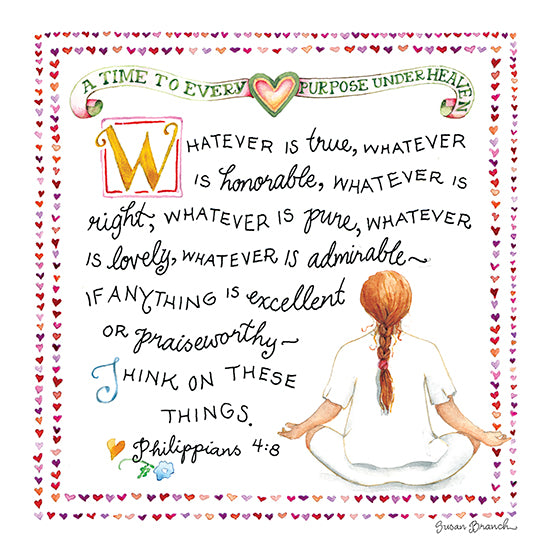 A TIME TO EVERY PURPOSE UNDER HEAVEN
WHATEVER IS true, WHATEVER
IS honorable, WHATEVER IS
right, WHATEVER IS pure, WHATEVER
IS lovely, WHATEVER IS admirable~
IF ANYTHING IS excellent
OR praiseworthy~
THINK ON THESE
THINGS.
Philippians 4:8
Susan Branch